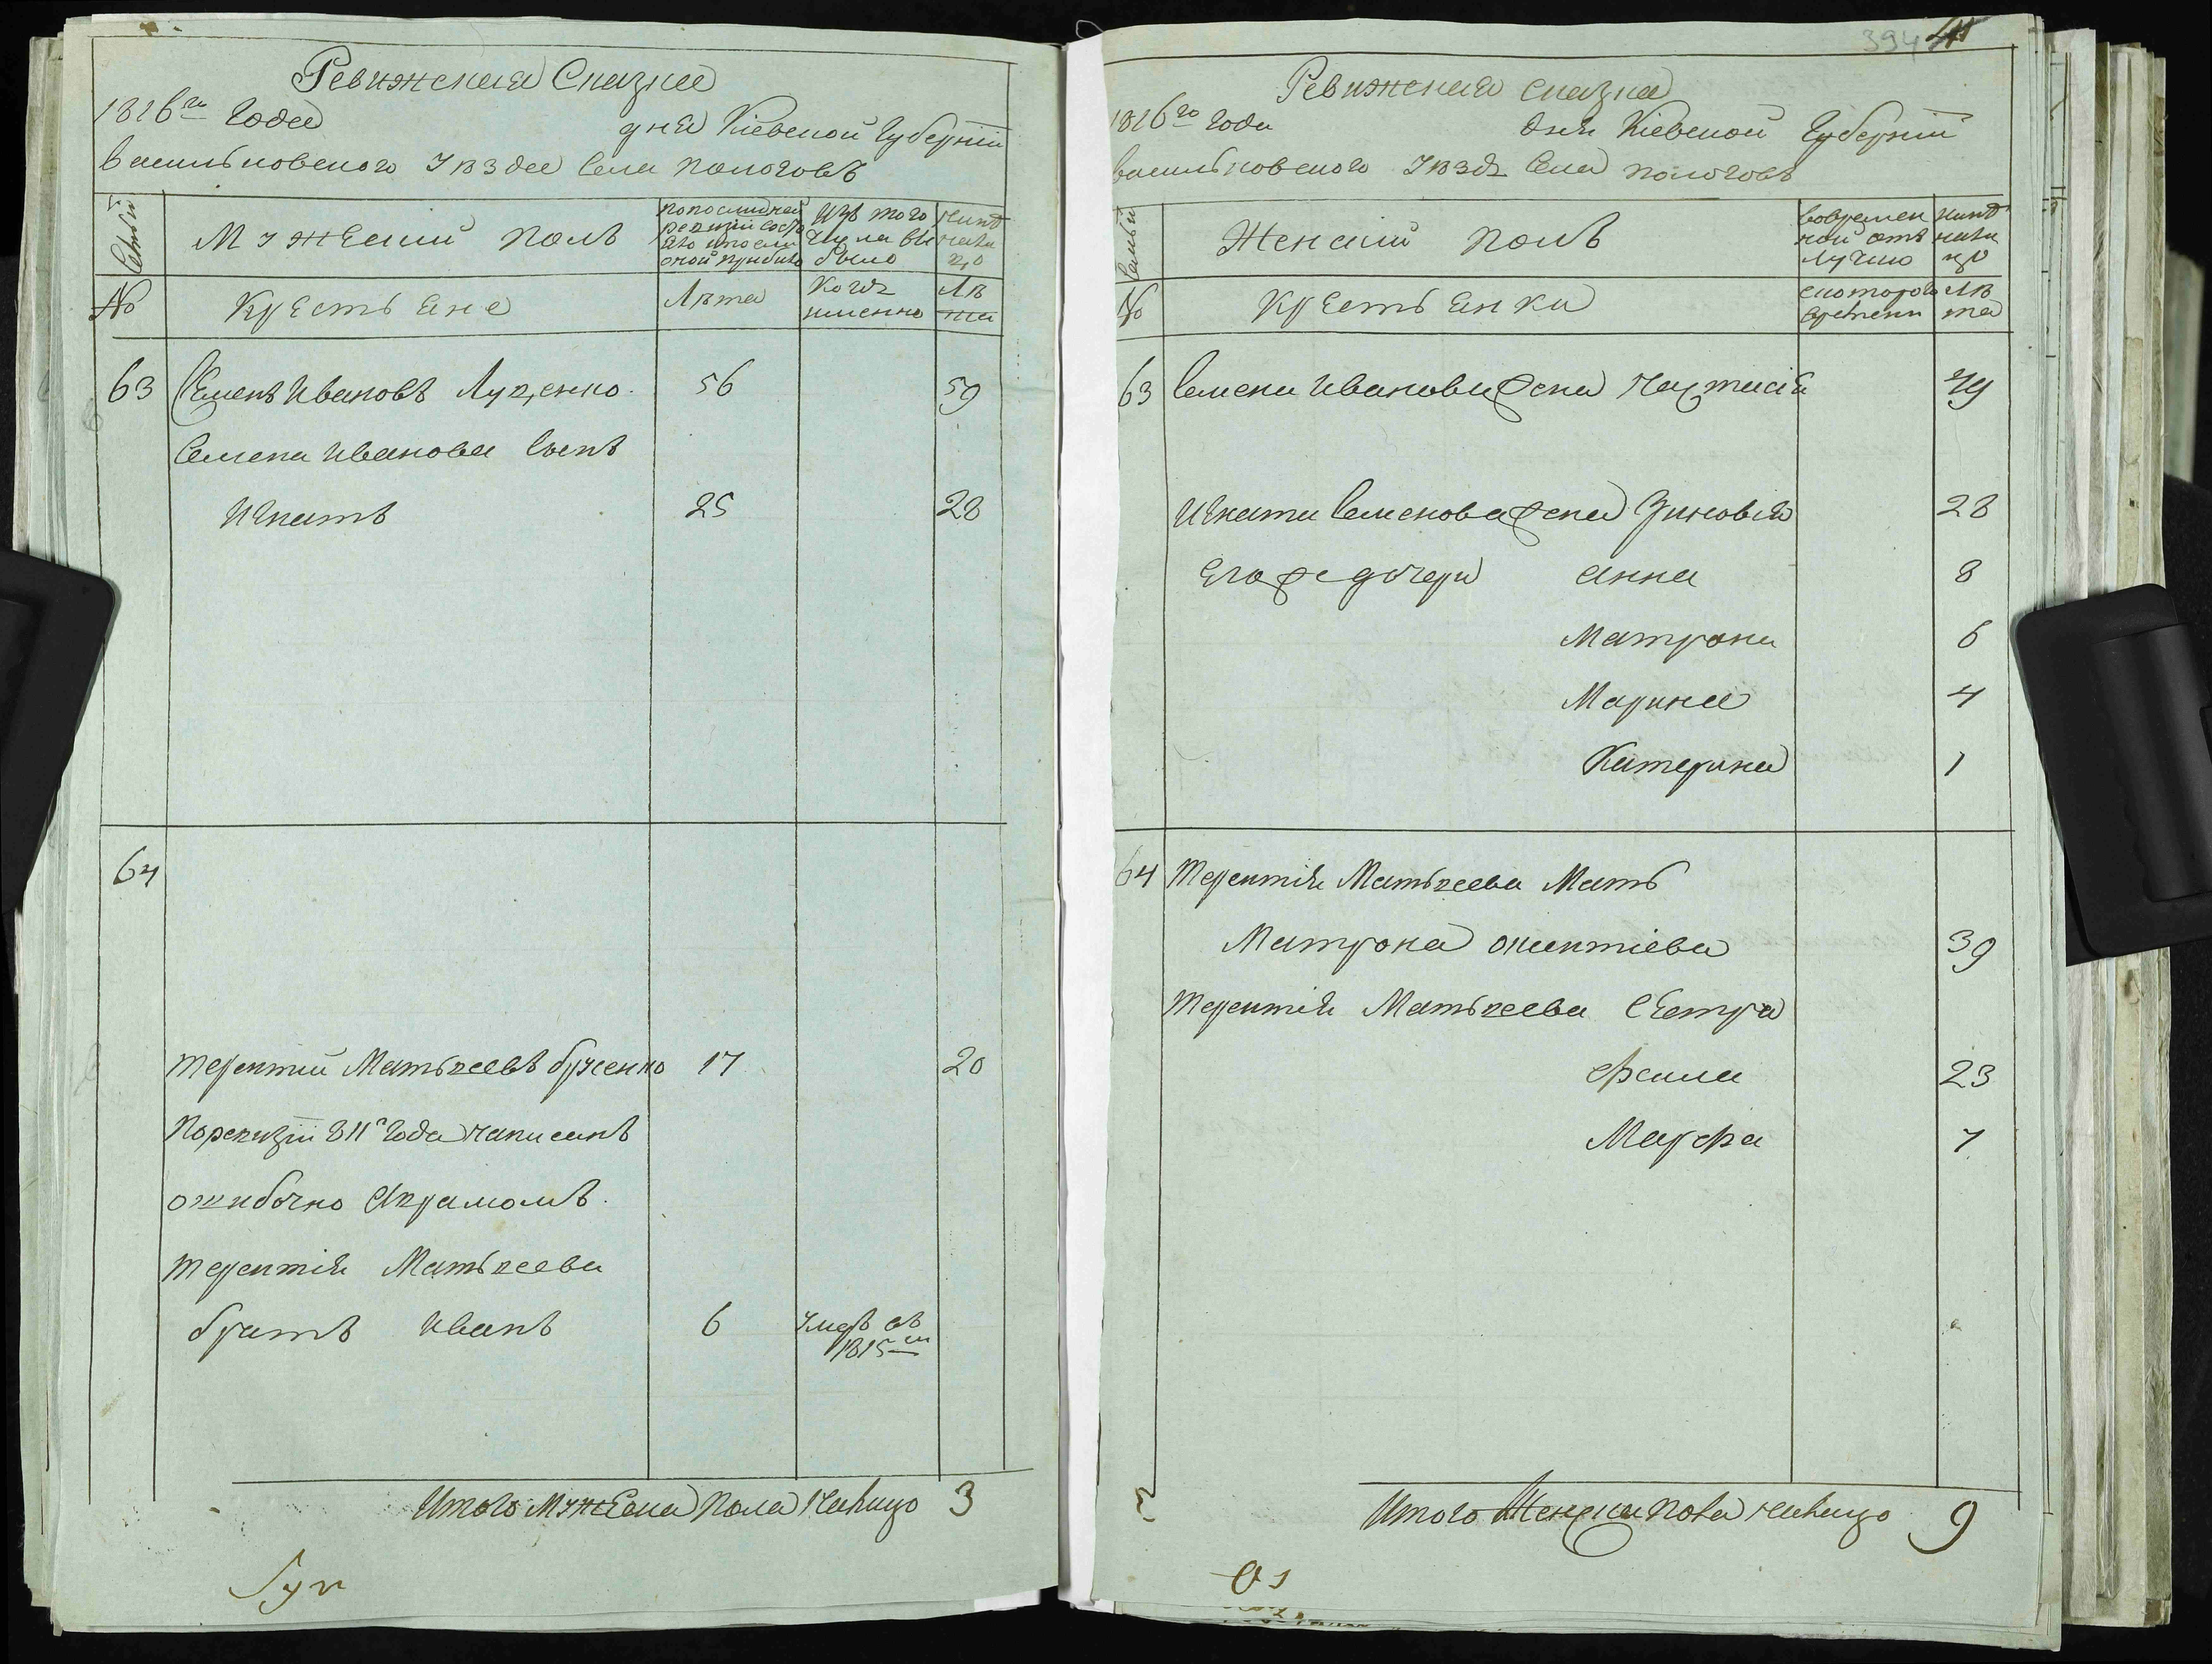 Ревижская Сказка
1816го Года дня Кіевской Губерніи
васильковского Уѣзда Села Пологовъ
Семьи
Мужеский полъ
попоследней ревизіи состояло ипосли оной прибыло
Изъ того числа выбыло
Нинѣ на лицо
№
Крестьяне
Лѣта
Когда имянно
Лѣта
63 Семенъ Ивановъ Луценко 56 59
Семена Иванова Сынъ
Игнатъ 25 28
64
терентий Матвѣевъ буженко 17 20
Поревизіи 811г Года написанъ
ошибочно Аврамомъ.
терентія Матвѣева
братъ Иванъ 6 Умеръ въ 1815м
Итого Мужеска Пола Налицо 3
394 41
Ревижская сказка
1816го года дня Кіевской Губерніи
васильковского Уѣзда Села пологовъ
Семьи
Женский полъ
Вовременной отлучки
Нинѣ налицо
№
Крестьянки
скоторого времени
Лѣта
63 Семена Иванова жена Настасія 49
Игната Семенова жена Зиновія 28
Его же дочери Анна 8
Матрона 6
Марина 4
Катерина 1
64 терентія Матвѣева Мать
Матрона 39
терентія Матвѣева Сестра
23
Марфа 7
Итого Женска пола налицо 9